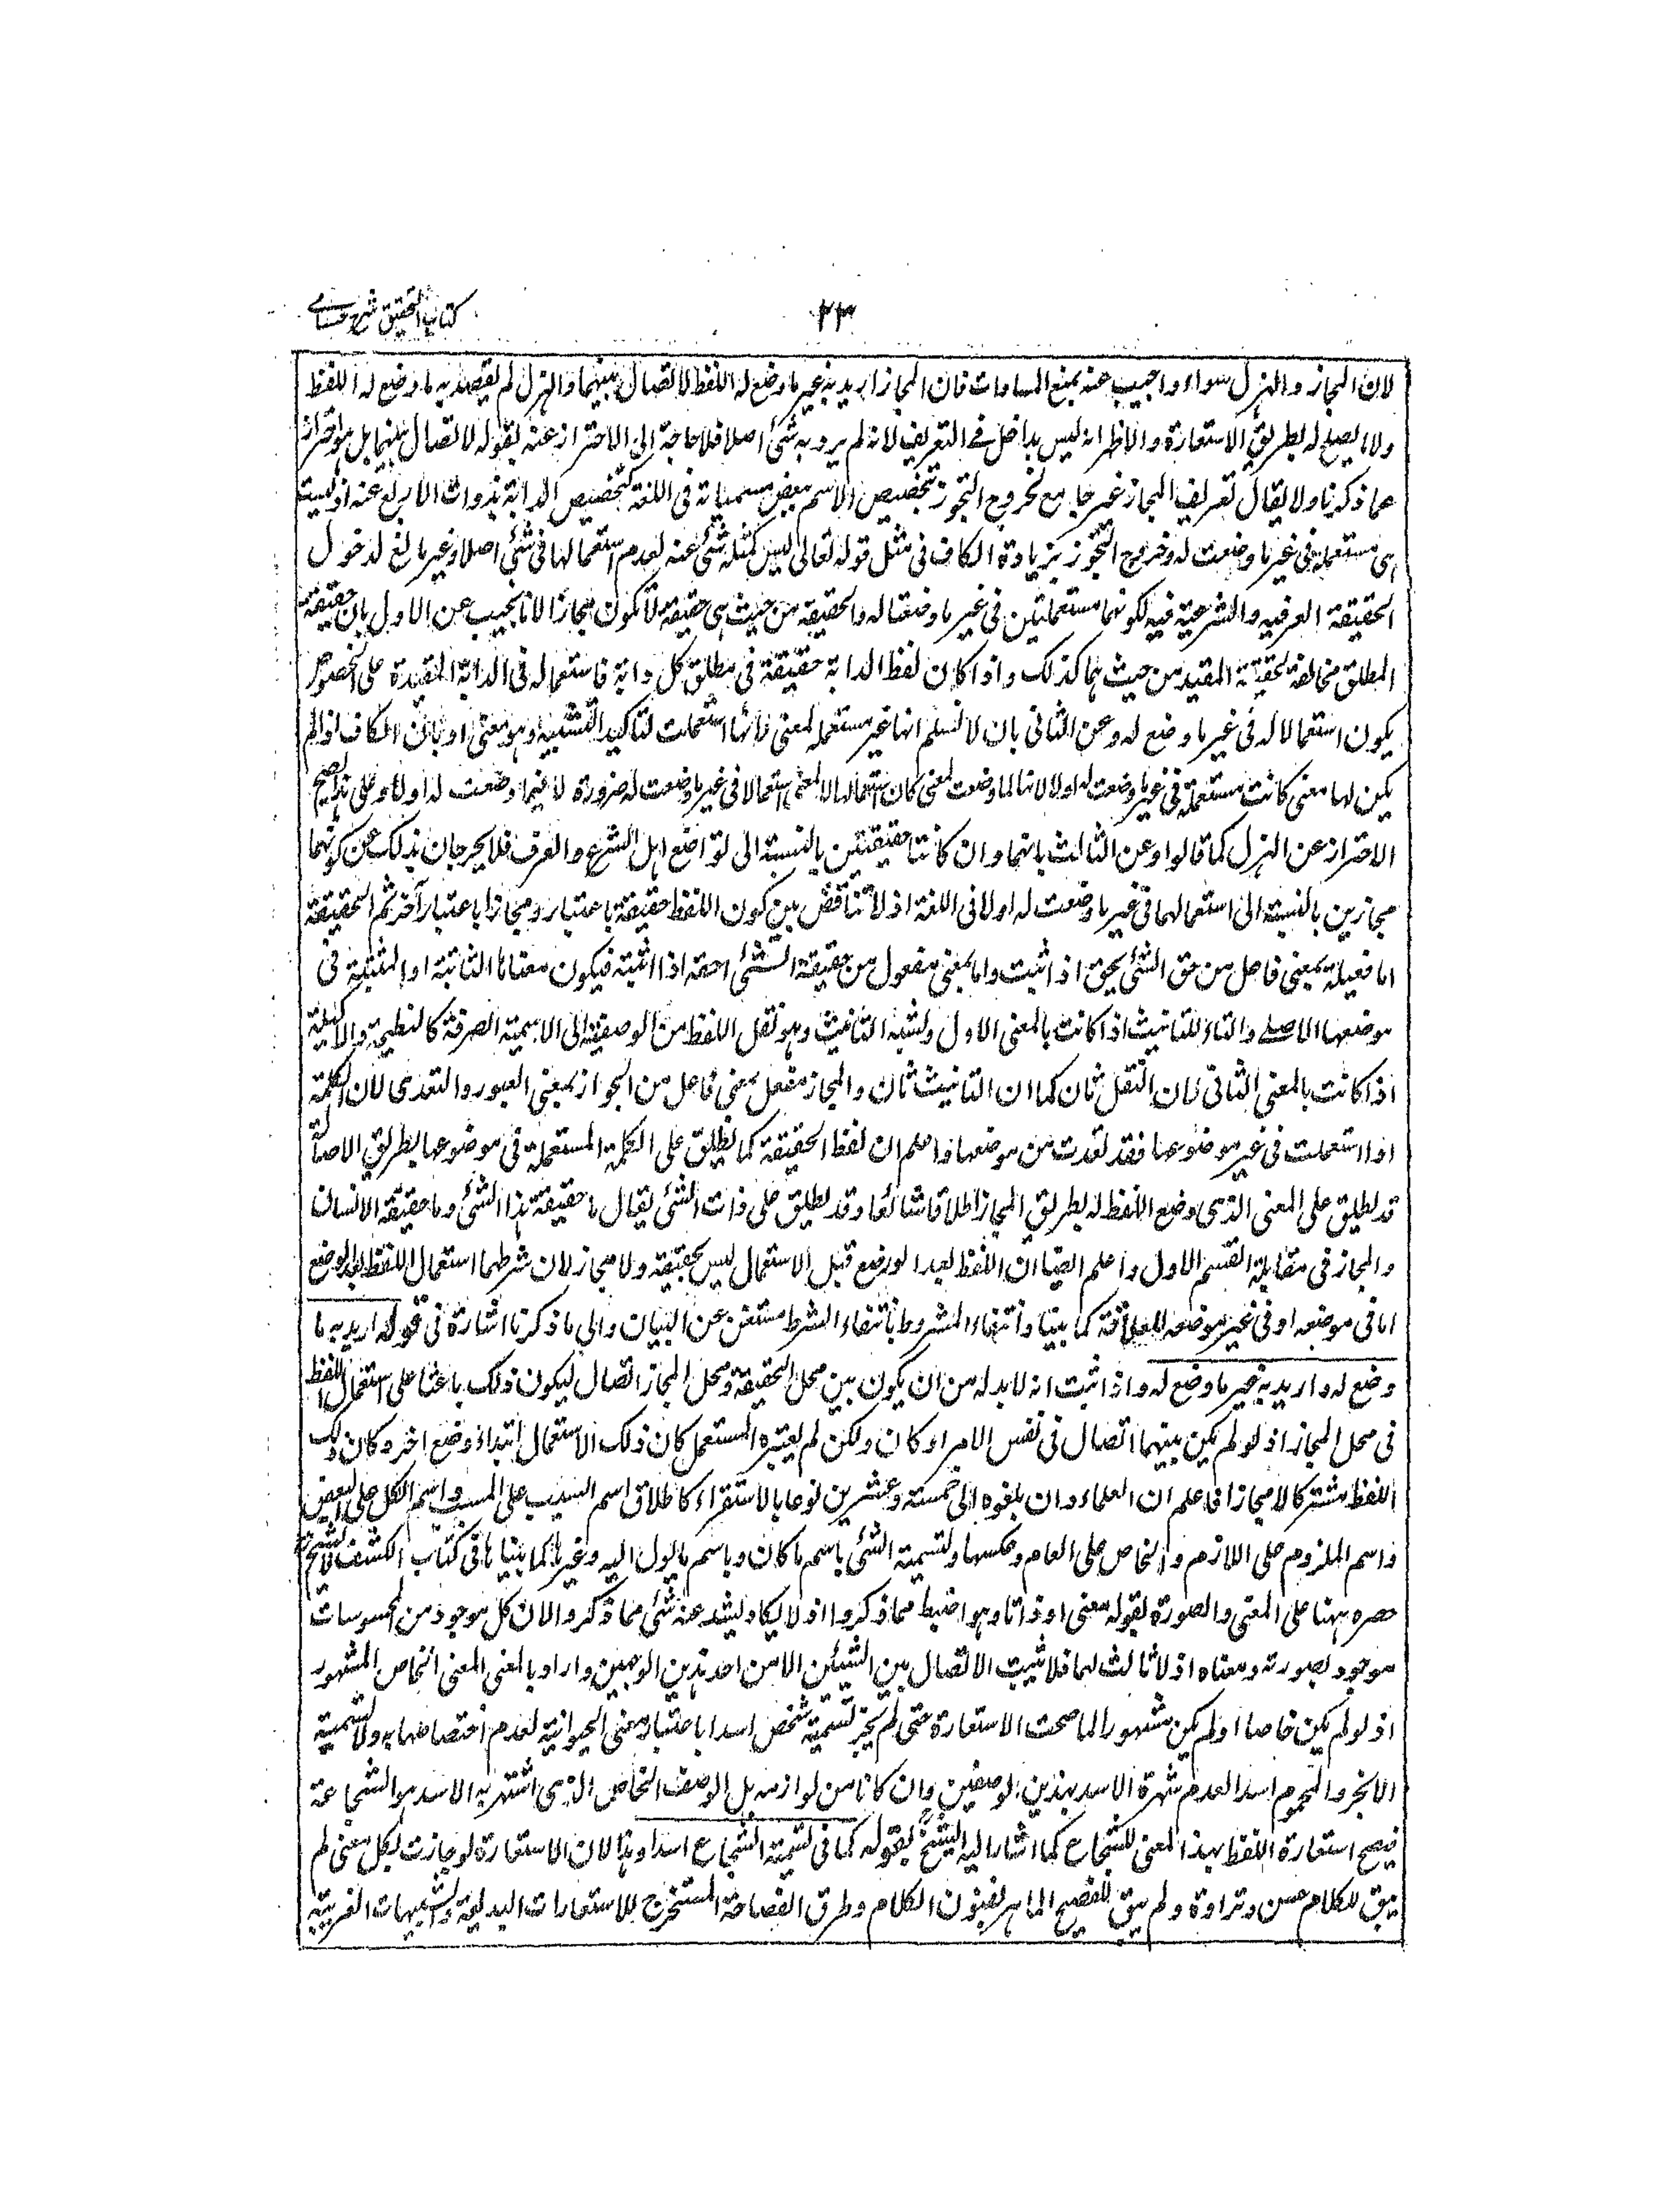 كتاب التحقيق شرح حسامي
٣٣
لان المجاز والهزل سواء واجيب عنه بمنع المساوات فان المجاز اريد به غير ما وضع له اللفظ لاتصال بينهما والهزل لم يقصد به ما وضع له اللفظ
ولا ما يصلح له بطريق الاستعارة والاظهر انه ليس بداخل في التعريف لانه لم يرد به شئ اصلا فلا حاجة الى الاحتراز عنه بقوله لاتصال بينهما بل هو احتراز
عما ذكرنا ولا يقال تعريف المجاز غير جامع لخروج التجوز بتخصيص الاسم ببعض مسمياته في اللغة كتخصيص الدابة بذوات الاربع عنه اذ ليست
هي مستعملة في غير ما وضعت له وخروج التجوز بزيادة الكاف في مثل قوله تعالى ليس كمثله شئ عنه لعدم استعمالها في شئ اصلا وغير مانع لدخول
الحقيقة العرفية والشرعية فيه لكونهما مستعملتين في غير ما وضعتا له والحقيقة من حيث هي حقيقة لا تكون مجازا لانا نجيب عن الاول بان حقيقة
المطلق مخالفة لحقيقة المقيد من حيث هما كذلك واذا كان لفظ الدابة حقيقة في مطلق كل دابة فاستعماله في الدابة المقيدة على الخصوص
يكون استعمالا له في غير ما وضع له وعن الثاني بان لا نسلم انها غير مستعملة لمعنى لانها استعملت لتاكيد التشبيه وهو معنى او بان الكاف لو لم
يكن لها معنى كانت مستعملة في غير ما وضعت له اولا لانها لما وضعت لمعنى كان استعمالها لا لمعنى استعمالا في غير ما وضعت له ضرورة لا فيما وضعت له اولا وعلى هذا يصح
الاحتراز عن الهزل كما قالوا وعن الثالث بانهما وان كانتا حقيقتين بالنسبة الى تواضع اهل الشرع والعرف فلا يخرجان بذلك عن كونهما
مجازين بالنسبة الى استعمالهما في غير ما وضعت له اولا في اللغة اذ لا تناقض بين كون اللفظ حقيقة باعتبار ومجازا باعتبار آخر ثم الحقيقة
اما فعيلة بمعنى فاعل من حق الشئ يحق اذا ثبت واما بمعنى مفعول من حقيقة الشئ احقه اذا اثبته فيكون معناها الثابتة او المثبتة في
موضعها الاصلے والتاء للتانيث اذا كانت بالمعنى الاول ولشبه التانيث وهو نقل اللفظ من الوصفية الى الاسمية الصرفة كالنطيحة والاكيلة
اذا كانت بالمعنى الثاني لان النقل ثان كما ان التانيث ثان والمجاز مفعل بمعنى فاعل من الجواز بمعنى العبور والتعدى لان الكلمة
اذا استعملت في غير موضوعها فقد تعدت من موضعها واعلم ان لفظ الحقيقة كما يطلق على الكلمة المستعملة في موضوعها بطريق الاصالة
قد يطلق على المعنى الذى وضع اللفظ له بطريق المجاز اطلاقا شائعا وقد يطلق على ذات الشئ يقال ما حقيقة هذا الشئ وما حقيقة الانسان
والمجاز في مقابلة القسم الاول واعلم ايضا ان اللفظ بعد الوضع قبل الاستعمال ليس بحقيقة ولا مجاز لان شرطهما استعمال اللفظ بعد الوضع
اما في موضعه او في غير موضعه للعلاقة كما بينا وانتفاء المشروط بانتفاء الشرط مستغن عن البيان والى ما ذكرنا اشارة في قوله اريد به ما
وضع له واريد به غير ما وضع له واذا ثبت انه لا بد له من ان يكون بين محل الحقيقة ومحل المجاز اتصال ليكون ذلك باعثا على استعمال اللفظ
في محل المجاز اذ لو لم يكن بينهما اتصال في نفس الامر او كان ولكن لم يعتبره المستعمل كان ذلك الاستعمال ابتداء وضع اخر وكان ذلك
اللفظ مشتركا لا مجازا فاعلم ان العلماء وان بلغوه الى خمسة وعشرين نوعا بالاستقراء كاطلاق اسم السبب على المسبب واسم الكل على البعض
واسم الملزوم على اللازم والخاص على العام وعكسها وتسمية الشئ باسم ما كان وباسم ما يول اليه وغيرها كما بيناها في كتاب الكشف فالشيخ
حصره ههنا على المعنى والصورة بقوله معنى او ذاتا وهو اضبط مما ذكروا اذ لا يكاد يشذ عنه شئ مما ذكروا لان كل موجود من المحسوسات
موجود بصورته ومعناه اذ لا ثالث لهما فلا يثبت الاتصال بين الشيئين الا من احد هذين الوجهين واراد بالمعنى المعنى الخاص المشهور
اذ لو لم يكن خاصا او لم يكن مشهورا لما صحت الاستعارة حتى لم يجز تسمية شخص اسدا باعتبار معنى الحيوانية لعدم اختصاصها به ولا تسمية
الابخر والمحموم اسدا لعدم شهرة الاسد بهذين الوصفين وان كانا من لوازمه بل الوصف الخاص الذى اشتهر به الاسد هو الشجاعة
فيصح استعارة اللفظ بهذا المعنى للشجاع كما اشار اليه الشيخ بقوله كما في تسمية الشجاع اسدا وهذا لان الاستعارة لو جازت بكل معنى لم
يبق للكلام حسن وتراوة ولم يبق للفصيح الماهر بفنون الكلام وطرق الفصاحة المستخرج للاستعارات البديعة والتشبيهات الغريبة